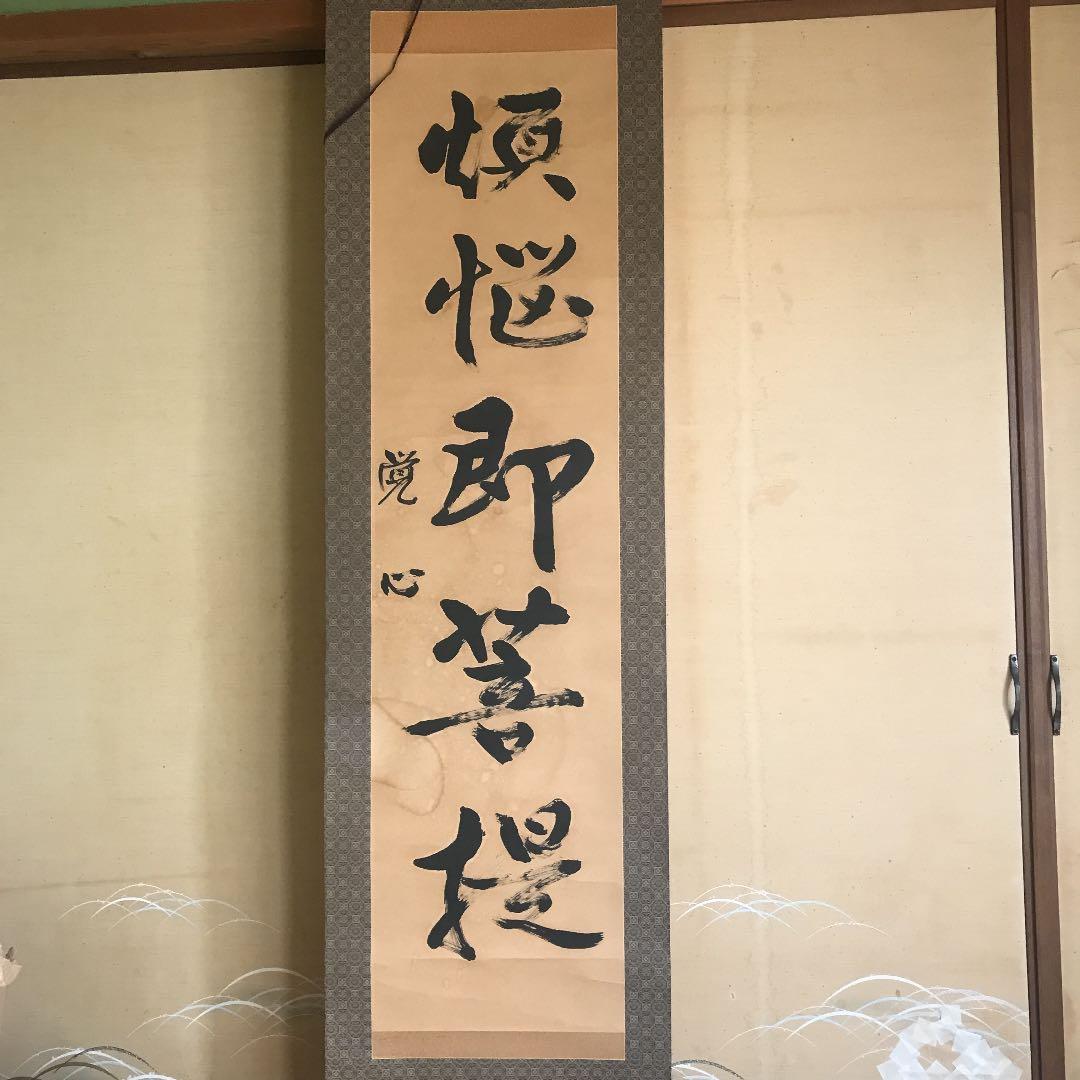 煩悩即菩提
覚心